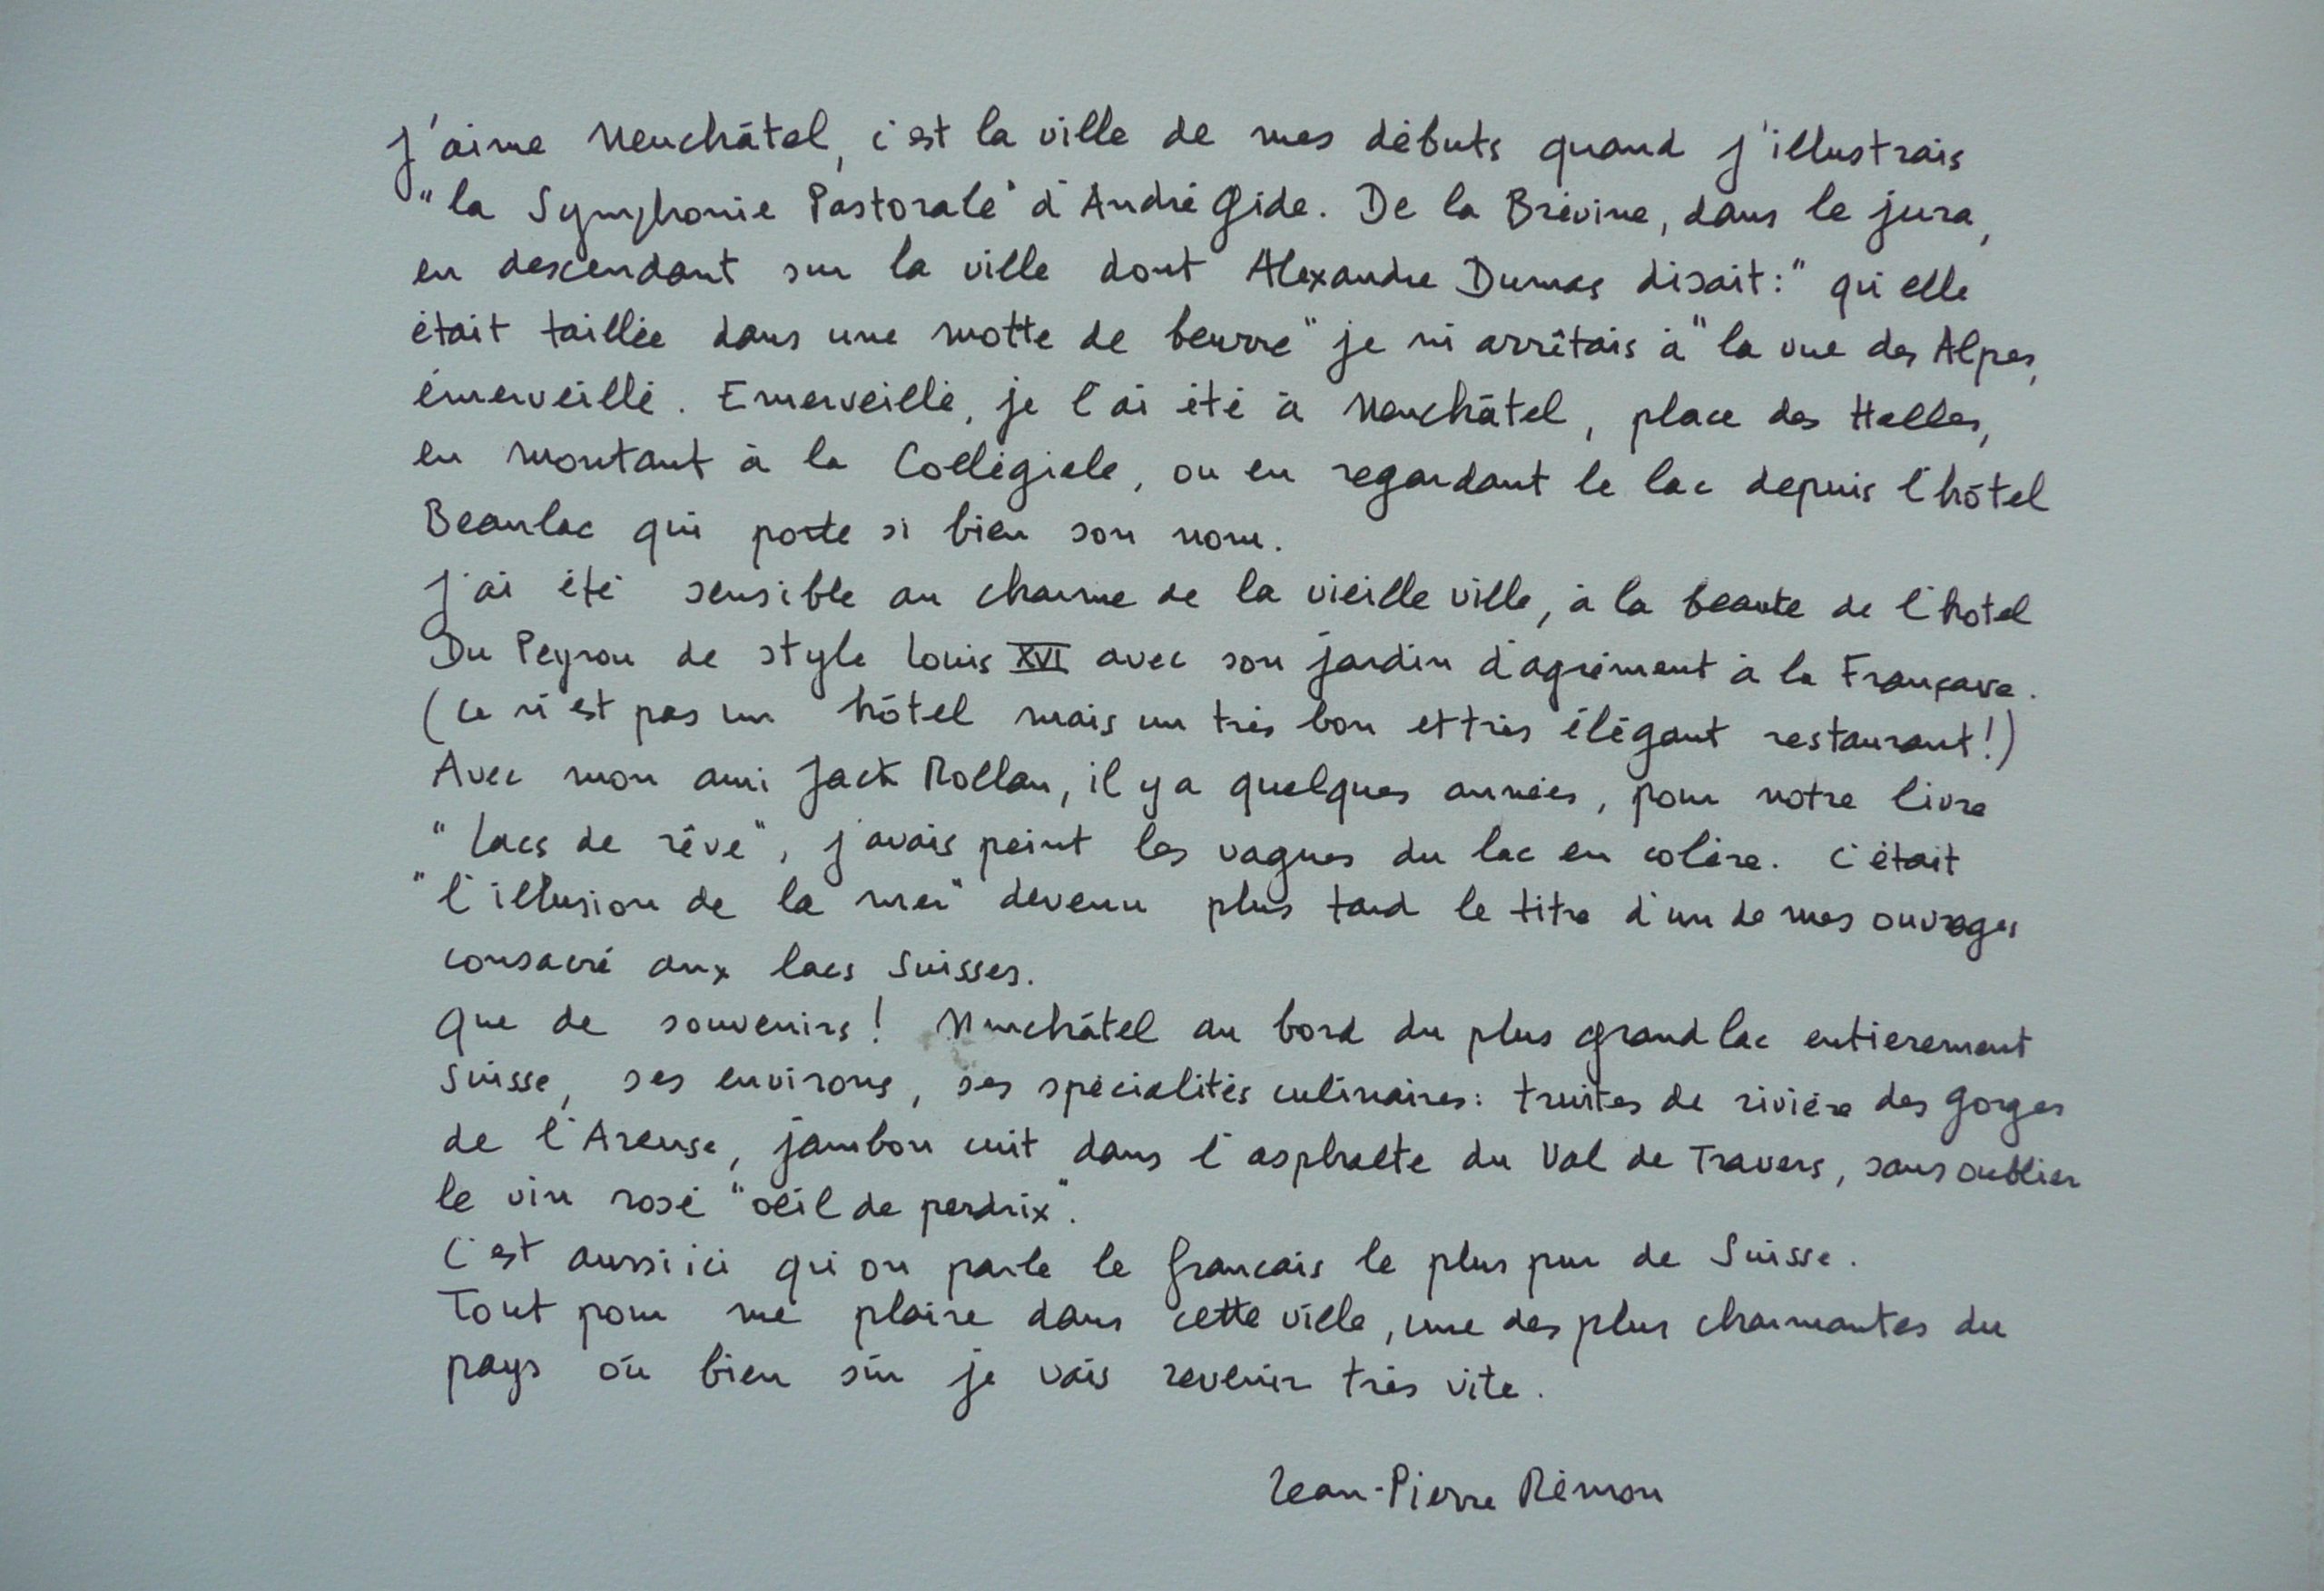 J'aime Neuchâtel, c'est la ville de mes débuts quand j'illustrais
"la Symphonie Pastorale" d'André Gide. De la Brévine, dans le jura,
en descendant sur la ville dont Alexandre Dumas disait : "qu'elle
était taillée dans une motte de beurre" je m'arrêtais à "la vue des Alpes,
émerveillé. Emerveillé, je l'ai été à Neuchâtel, place des Halles,
en montant à la Collégiale, ou en regardant le lac depuis l'hôtel
Beaulac qui porte si bien son nom.
J'ai été sensible au charme de la vieille ville, à la beauté de l'hotel
Du Peyrou de style Louis XVI avec son jardin d'agrément à la Française.
(ce n'est pas un hôtel mais un très bon et très élégant restaurant!)
Avec mon ami Jack Rollan, il y a quelques années, pour notre livre
"Lacs de rêve", j'avais peint les vagues du lac en colère. C'était
"l'illusion de la mer" devenu plus tard le titre d'un de mes ouvrages
consacré aux lacs Suisses.
Que de souvenirs! Neuchâtel au bord du plus grand lac entierement
Suisse, ses environs, ses spécialités culinaires: truites de rivière des gorges
de l'Areuse, jambon cuit dans l'asphalte du Val de Travers, sans oublier
le vin rosé "oeil de perdrix".
C'est aussi ici qu'on parle le francais le plus pur de Suisse.
Tout pour me plaire dans cette ville, une des plus charmantes du
pays où bien sûr je vais revenir très vite.
Jean-Pierre Rémon